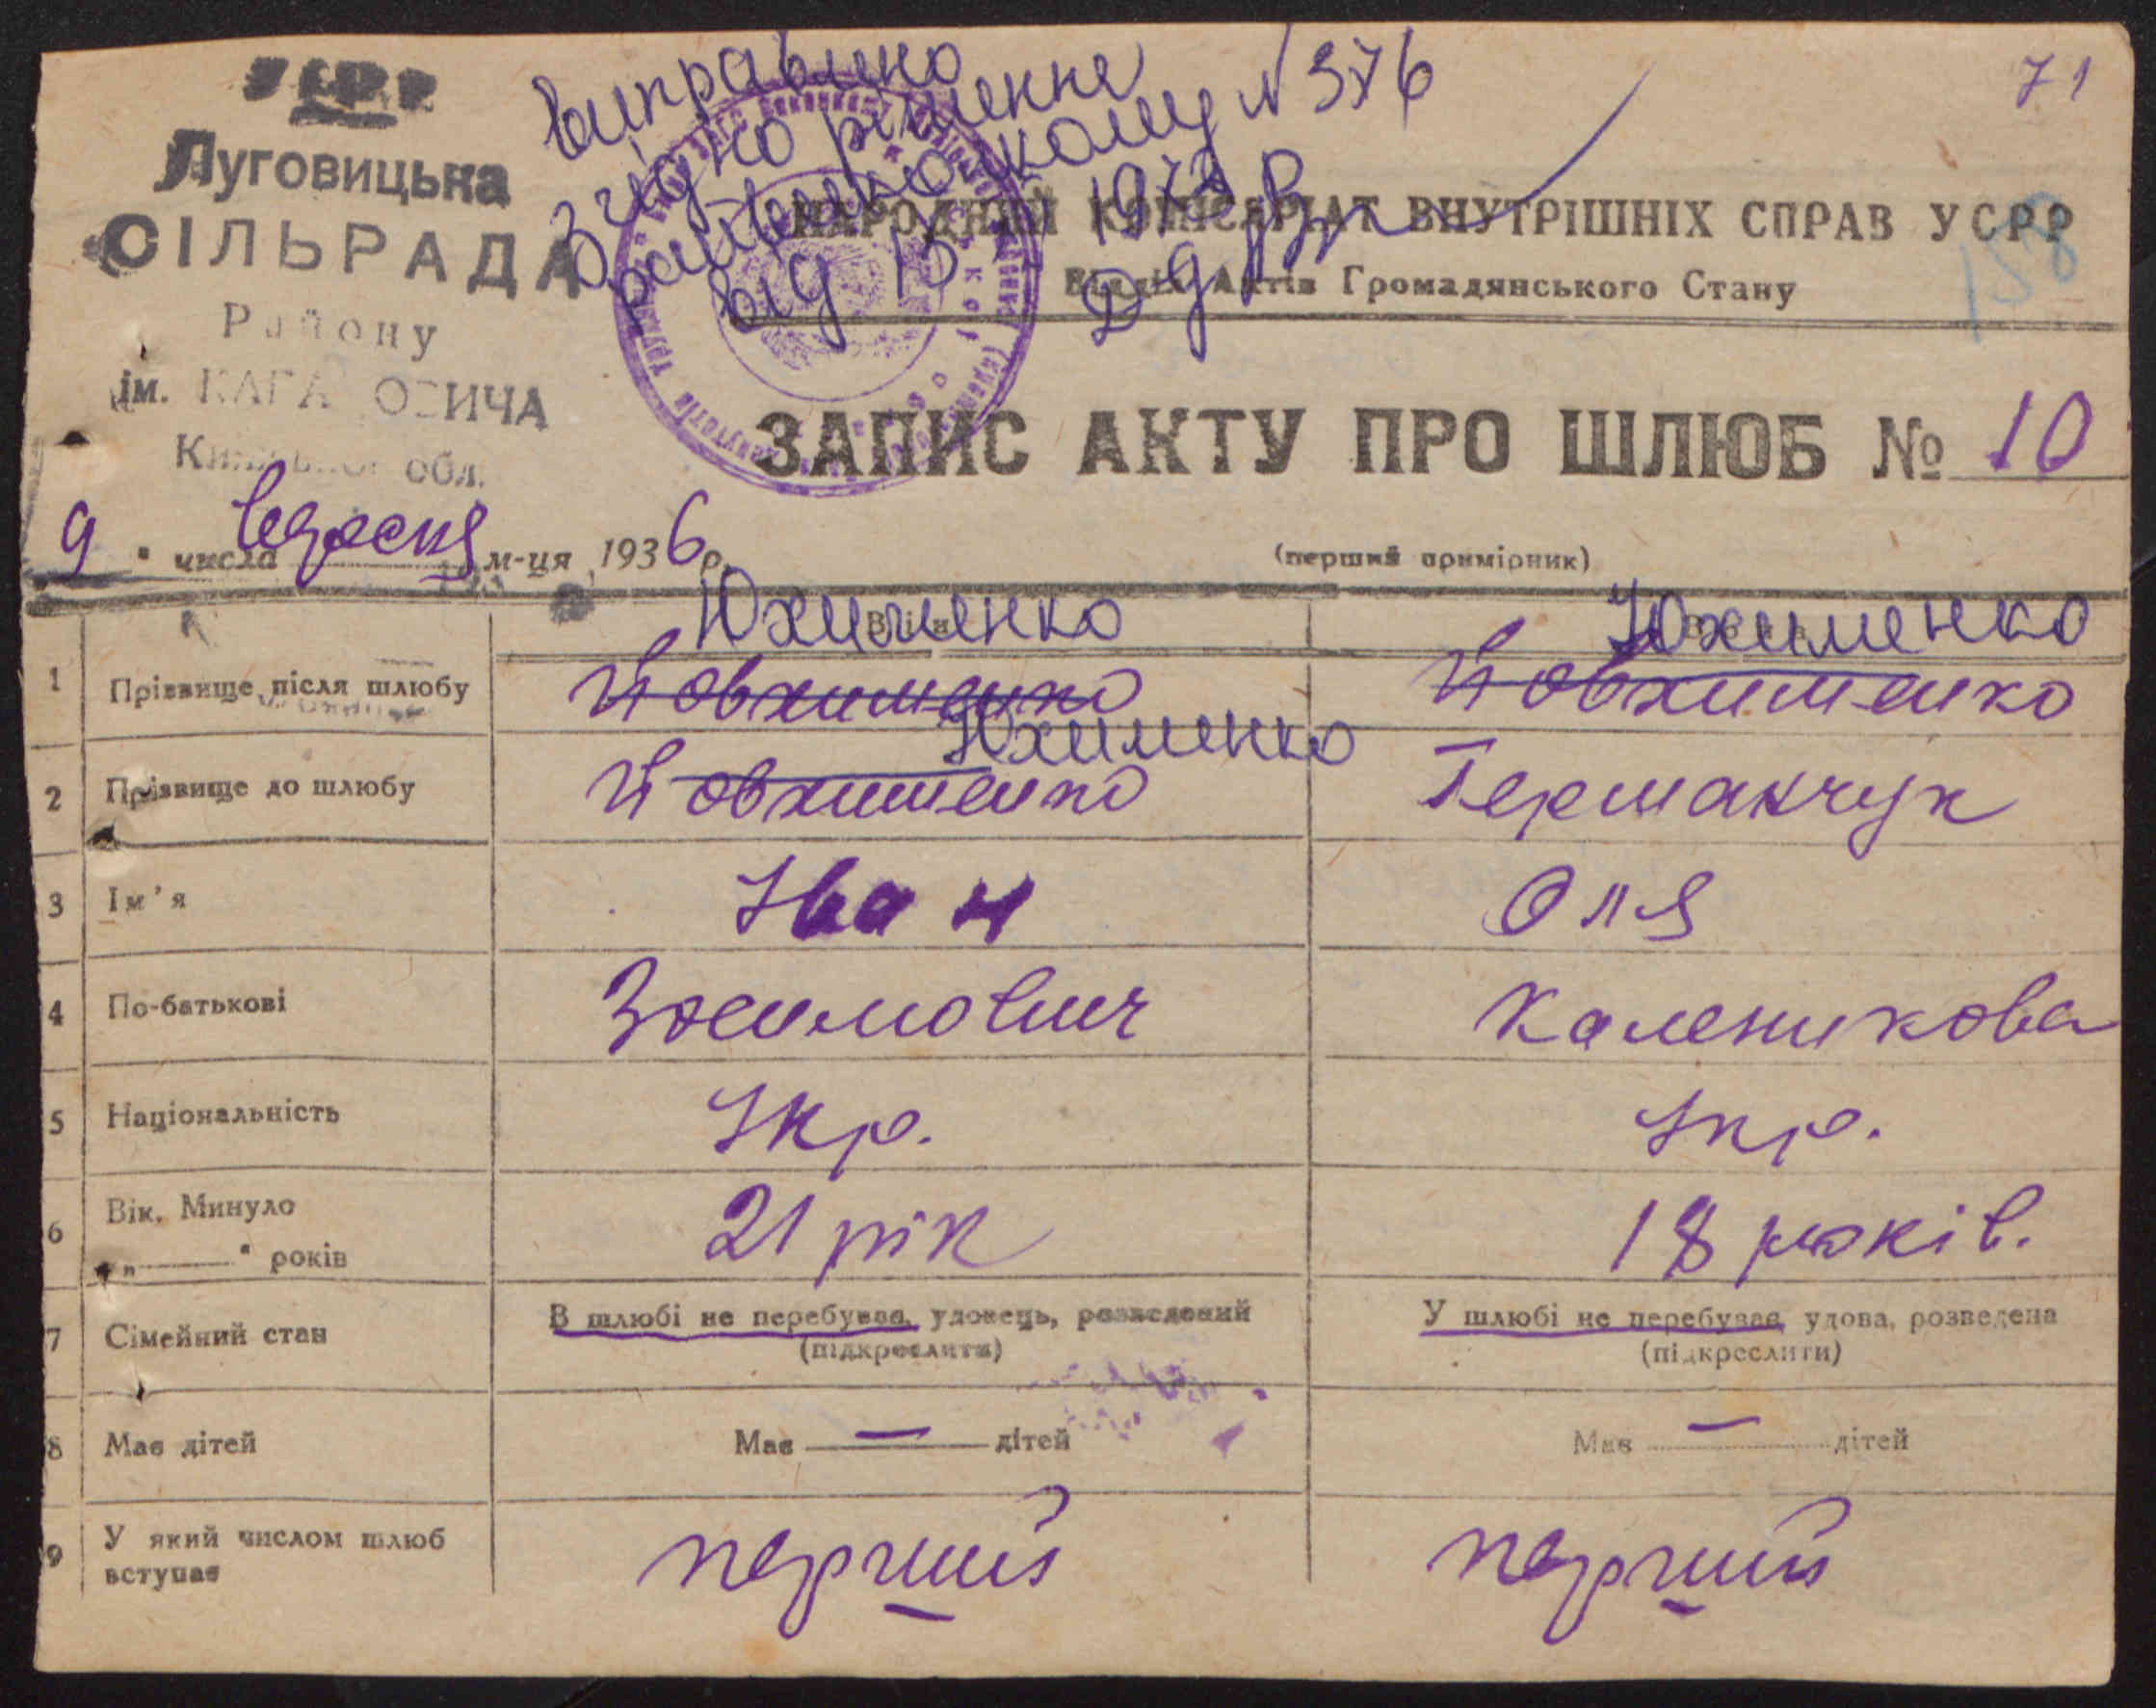 УСРР
Луговицька
СІЛЬРАДА
Району
ім. КАГАНОВИЧА
Київської обл.
Виправлено
згідно рішення
райвиконкому № 376
від 15 1973 р.
71
158
НАРОДНИЙ КОМІСАРІАТ ВНУТРІШНІХ СПРАВ УСРР
Відділ Актів Громадянського Стану
ЗАПИС АКТУ ПРО ШЛЮБ № 10
9 " числа вересня м-ця 1936 р.
(перший примірник)
Юхименко Юхименко
1 Прізвище після шлюбу Йовхименко Йовхименко
Юхименко
2 Прізвище до шлюбу Йовхименко Германчук
3 Ім'я Іван Оля
4 По-батькові Зосимович Каленикова
5 Національність Укр. Укр.
6 Вік. Минуло 21 рік 18 років.
„ " років
7 Сімейний стан В шлюбі не перебуває, удовець, розведений У шлюбі не перебуває, удова, розведена
(підкреслити) (підкреслити)
8 Має дітей Має — дітей Має — дітей
9 У який числом шлюб вступає перший перший